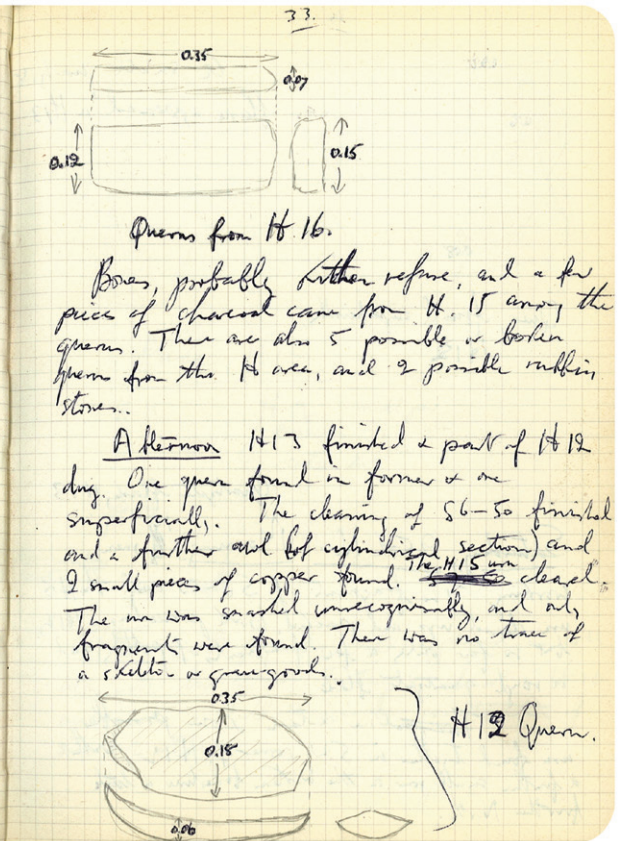 33.
0.35
0.07
0.12
0.15
Querns from H 16.
Bones, probably kitchen refuse, and a few
pieces of charcoal came from H. 15 among the
querns. There are also 5 possible or broken
querns from the H area, and 2 possible rubbing
stones..
Afternoon H13 finished & part of H12
dug. One quern found in former & one
superficially. The cleaning of S6-50 finished
and a further awl (of cylindrical section) and
2 small pieces of copper found. The H15 urn cleared.
The urn was smashed unrecognisably, and only
fragments were found. There was no trace of
a skeleton or grave-goods.
0.35
0.18
H12 Quern.
0.06